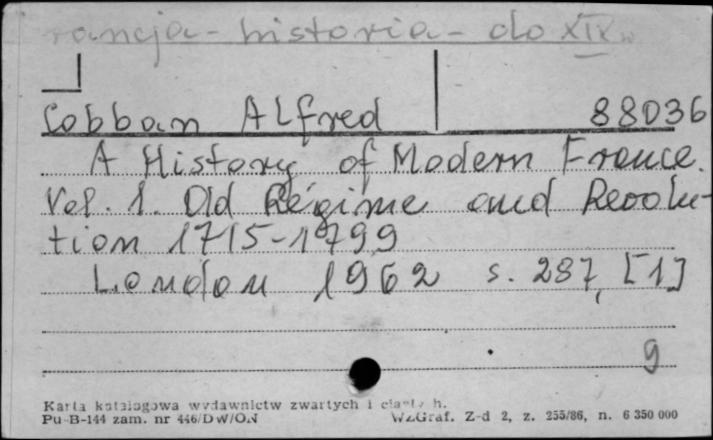 rancja - historia - do XIX w
Cobban Alfred 88036
A History of Modern France.
Vol. 1. Old Régime and Revolu-
tion 1715-1799
London 1962 s. 287, [1]
9
Karta katalogowa wydawnictw zwartych i ciągłych.
Pu-B-144 zam. nr 446/DW/ON WZGraf. Z-d 2, z. 255/86, n. 6 350 000